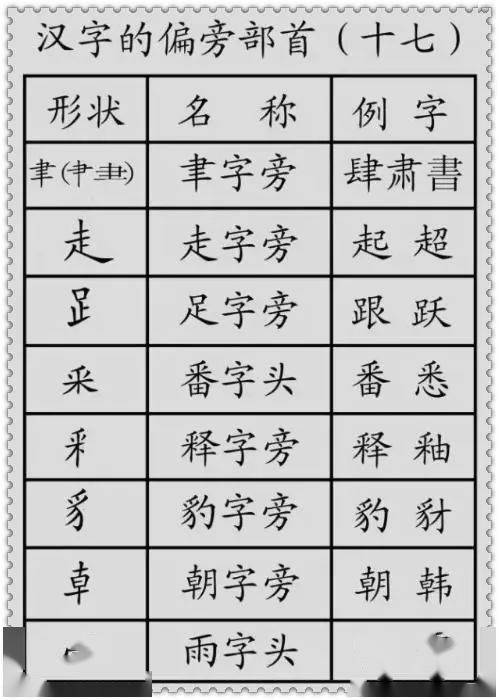 汉字的偏旁部首（十七）
形状 名称 例字
聿(肀⺻) 聿字旁 肆肃書
走 走字旁 起超
𧾷 足字旁 跟跃
釆 番字头 番悉
釆 释字旁 释釉
豸 豹字旁 豹豺
𠦝 朝字旁 朝韩
雨字头